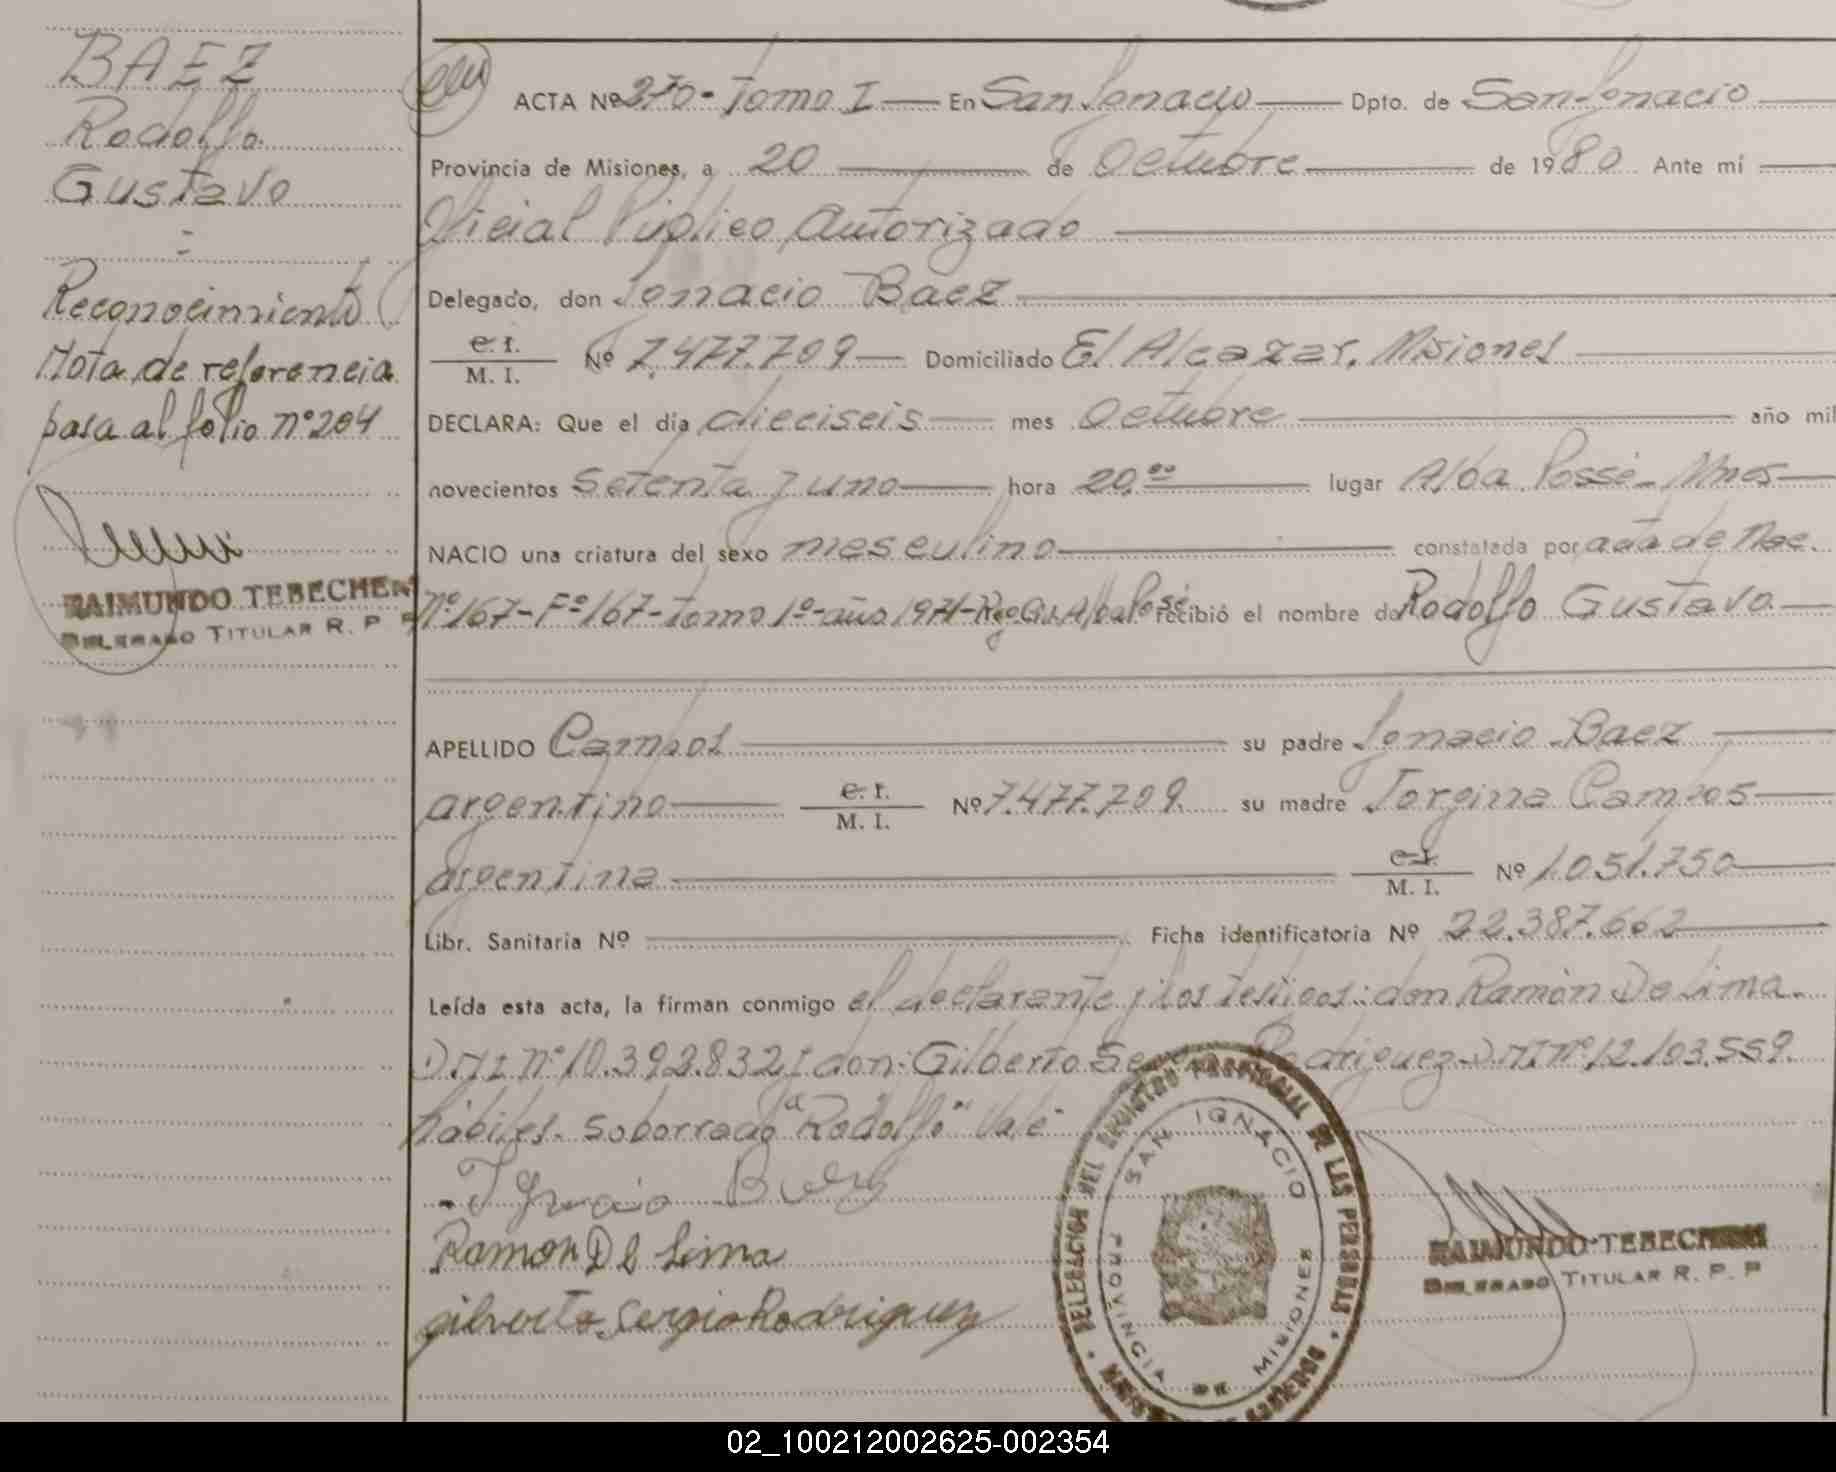 BAEZ
Rodolfo
Gustavo
Reconocimiento
Nota de referencia
pasa al folio nº 204
RAIMUNDO TEBECHERI
DELEGADO TITULAR R. P. P
ACTA Nº 270 - Tomo I — En San Ignacio — Dpto. de San Ignacio
Provincia de Misiones, a 20 — de Octubre — de 1980. Ante mí
Oficial Público Autorizado
Delegado, don Ignacio Baez
C. I. / M. I. Nº 7.477.709 — Domiciliado El Alcazar, Misiones
DECLARA: Que el día dieciseis — mes Octubre — año mil
novecientos Setenta y uno — hora 20.00 — lugar Alba Possé - Mnes
NACIO una criatura del sexo mesculino — constatada por acta de Nac.
Nº 167 - Fº 167 - Tomo 1º - año 1971 - Reg. Civ. Alba Posé recibió el nombre de Rodolfo Gustavo
APELLIDO Campos — su padre Ignacio Baez
argentino — C. I. / M. I. Nº 7.477.709. su madre Jorgina Campos
argentina — C. I. / M. I. Nº 1.051.750
Libr. Sanitaria Nº — Ficha identificatoria Nº 22.387.662
Leída esta acta, la firman conmigo el declarante y los testigos: don Ramón De Lima.
D.N.I. nº 10.392.832 y don: Gilberto Se Rodriguez D.N.I nº 12.103.559.
hábiles. Soborrado "Rodolfo" Vale
Ignacio Baez
Ramon De Lima
gilberto Sergio Rodriguez
DELEGACION DEL REGISTRO PROVINCIAL DE LAS PERSONAS
SAN IGNACIO
PROVINCIA DE MISIONES
RAIMUNDO TEBECHERI
DELEGADO TITULAR R. P. P
02_100212002625-002354